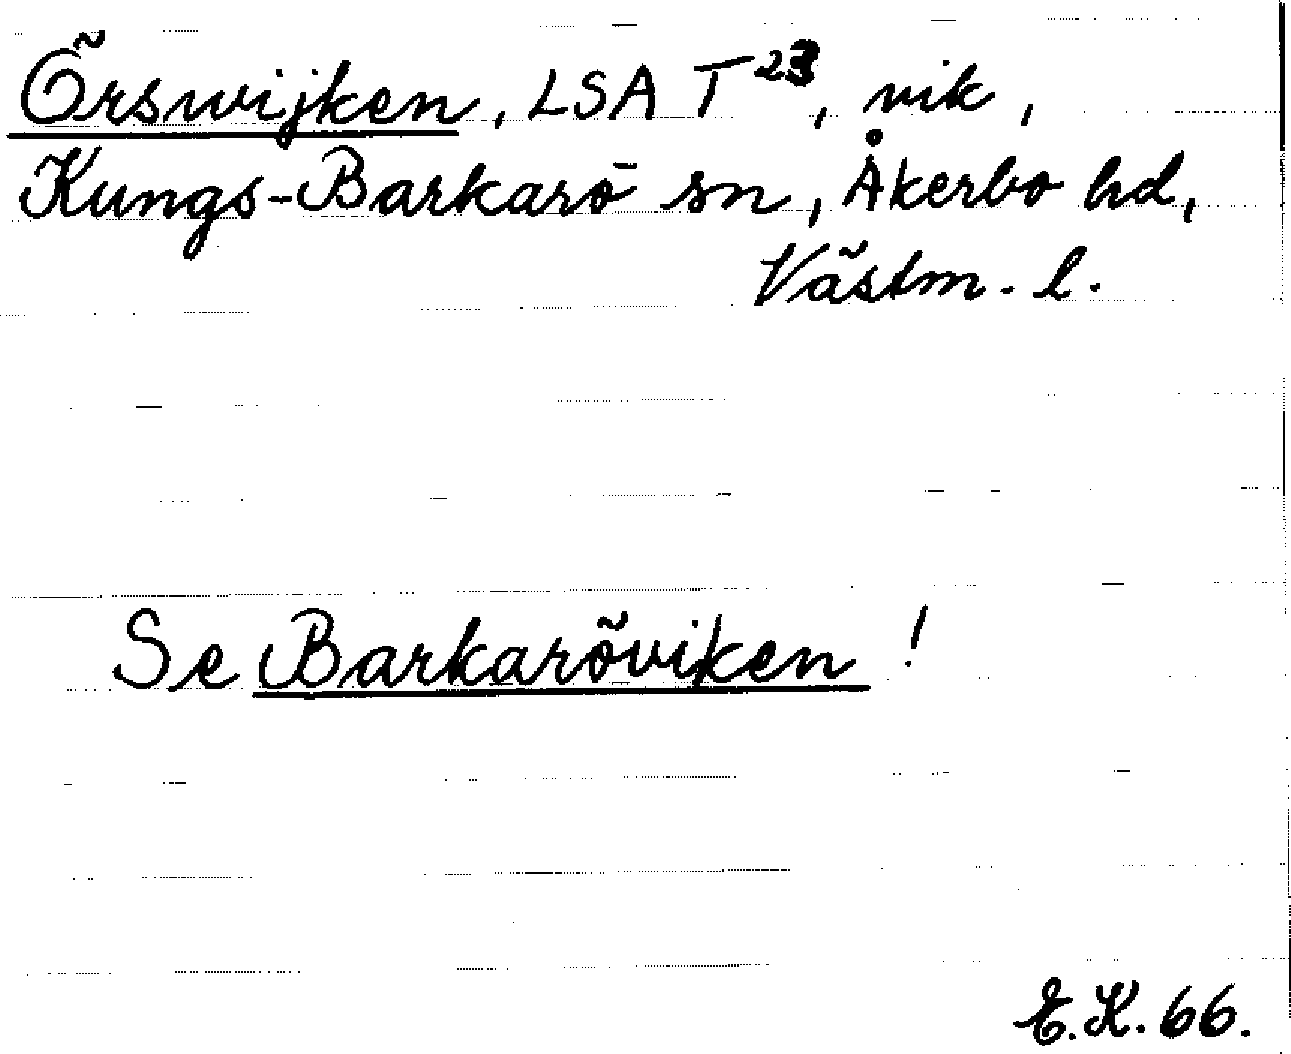 Örswijken, LSA T 23, vik,
Kungs-Barkarö sn, Åkerbo hd,
Västm. l.
Se Barkaröviken !
E.K. 66.